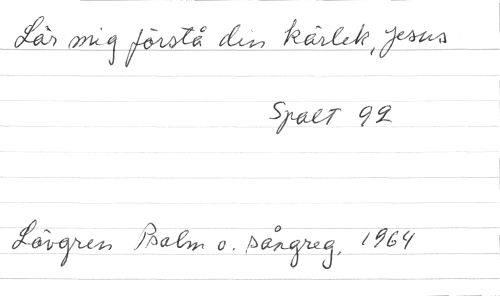 Lär mig förstå din kärlek, Jesus
Spalt 92
Lövgren Psalm o. sångreg. 1964